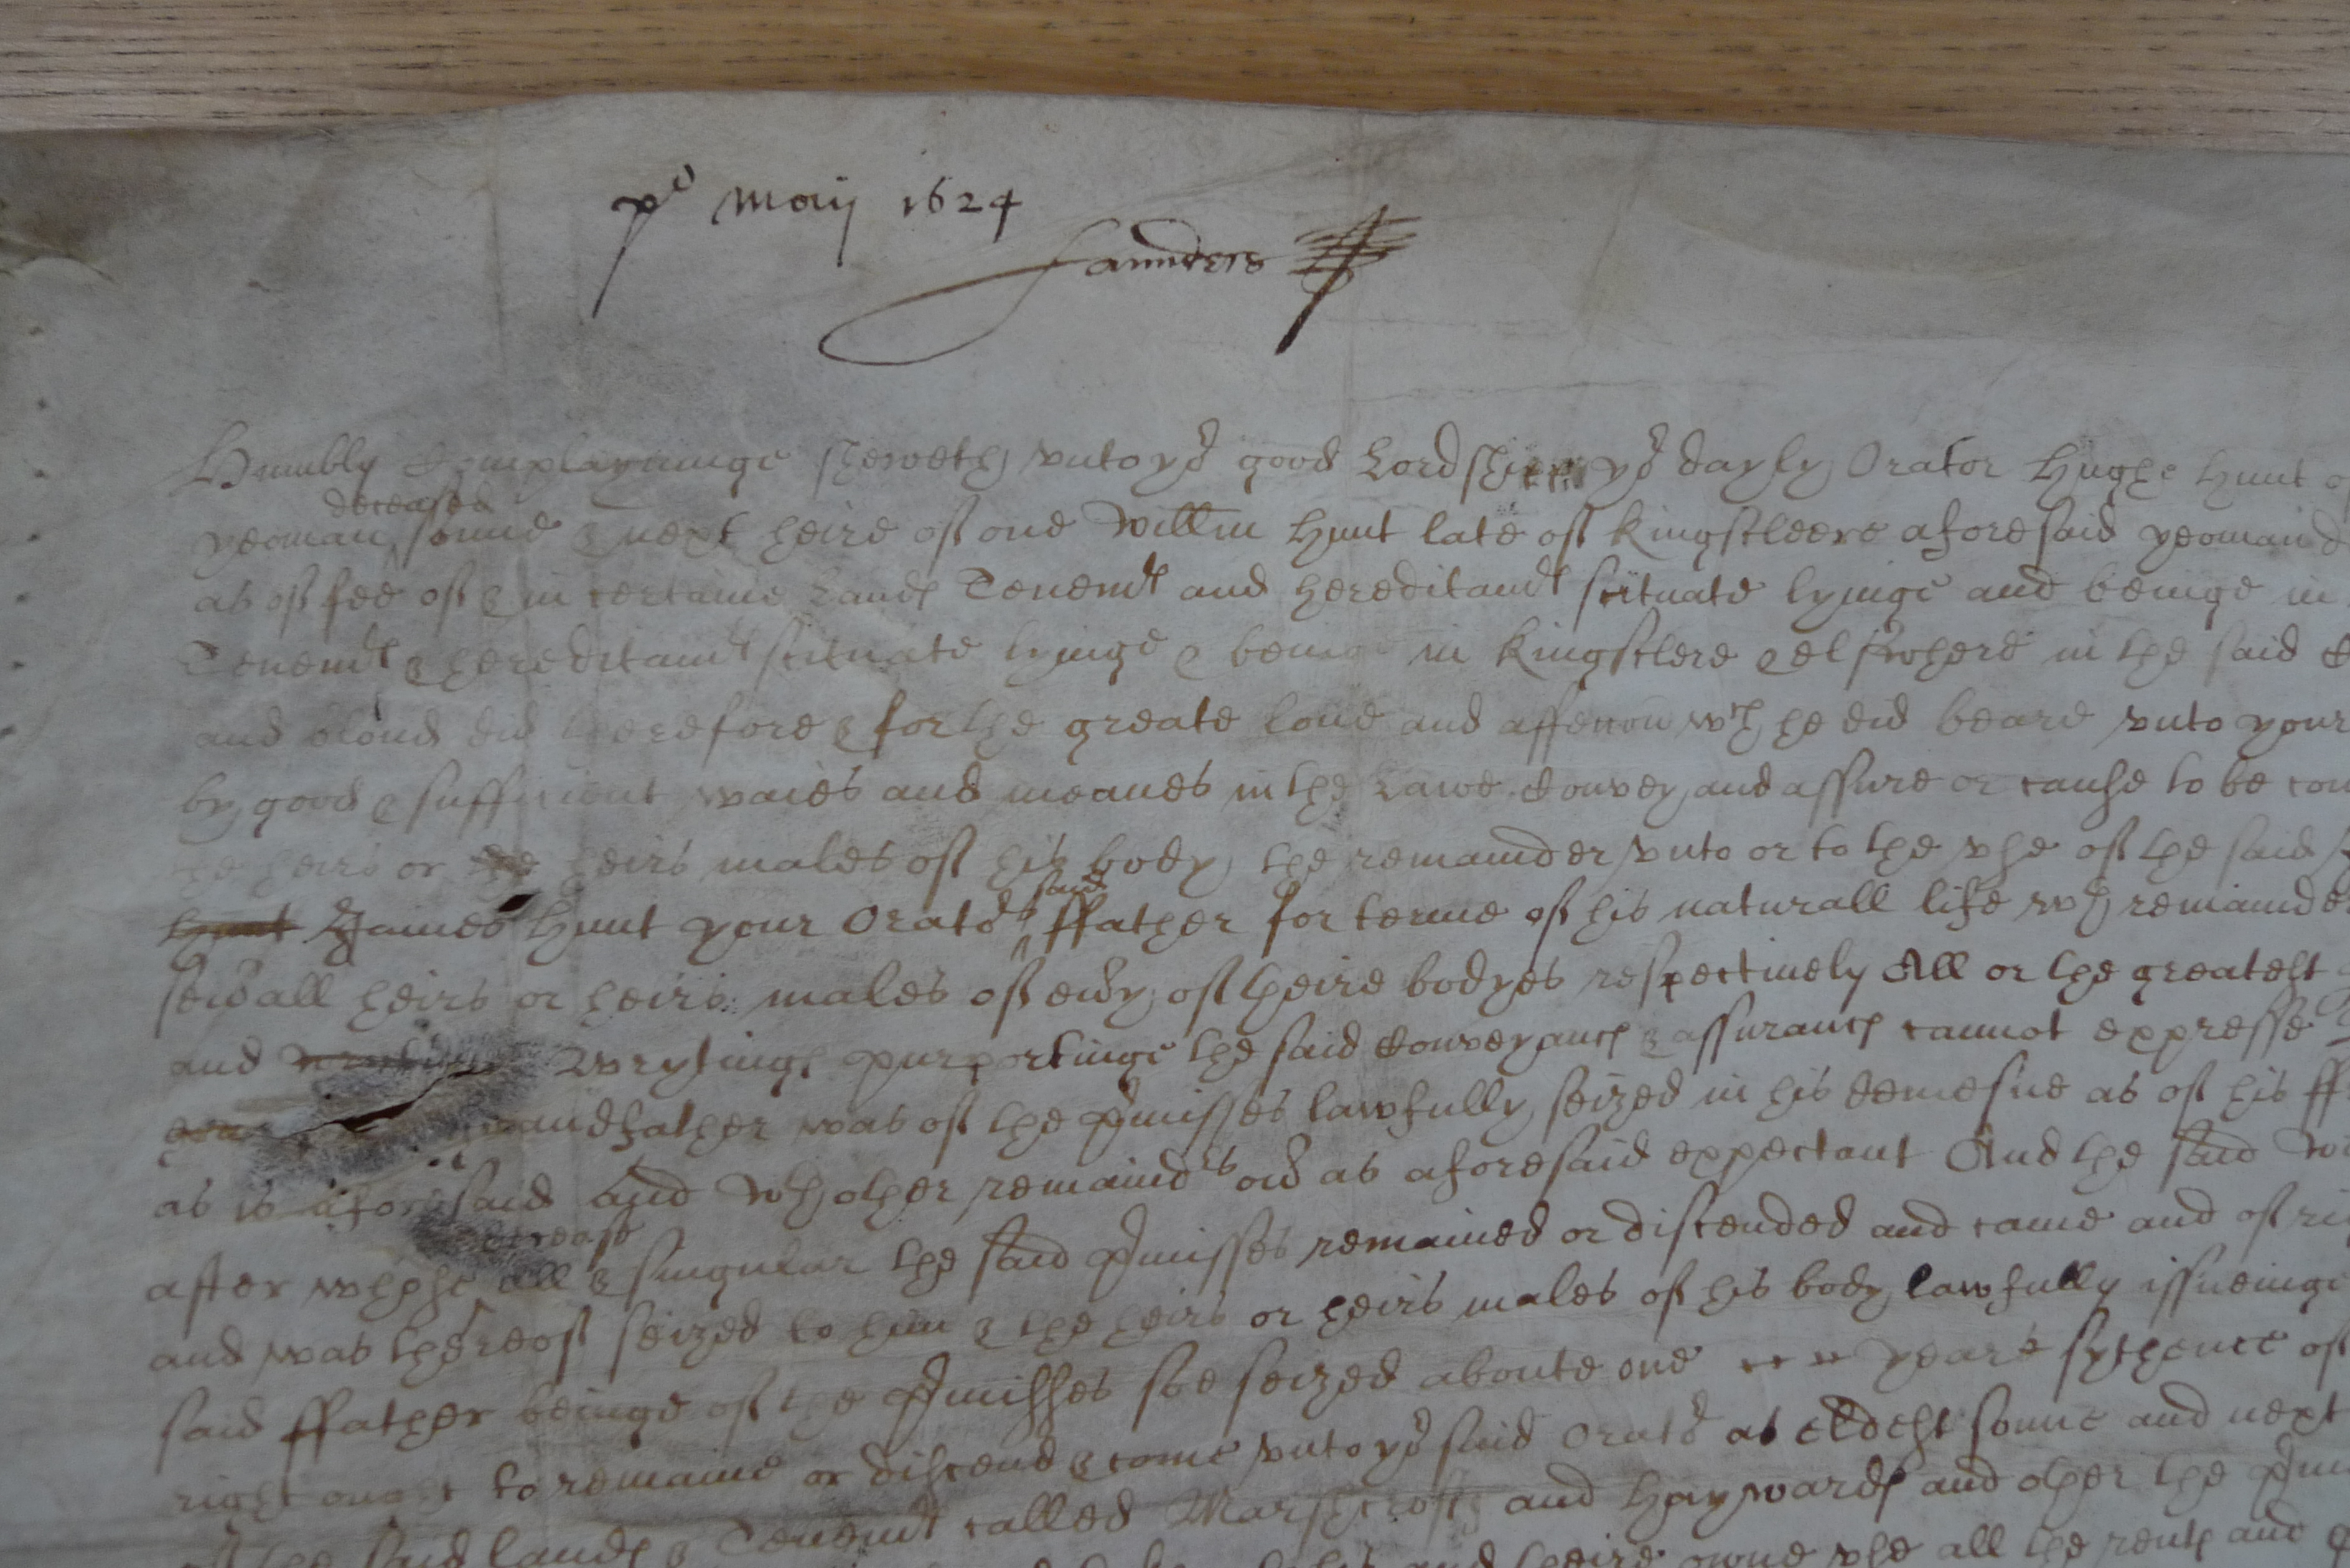 po Maij 1624
Saunders
Humbly Complayninge sheweth vnto yor good Lordshipp yor dayly Orator Hughe Hunt
deceased
yeoman sonne & next heire of one Willm Hunt late of Kingscleere aforesaid yeoman
as of fee of & in certaine Landes Tenemtes and hereditamtes scituate lyinge and beinge in
Tenemtes & hereditamtes scituate lyinge & beinge in Kingsclere & elswhere in the said
and bloud did therefore & for the greate loue and affeccon wch he did beare vnto your
by good & sufficient waies and meanes in the Lawe Convey and assure or cause to be con
the heirs or the heirs males of his body the remainder vnto or to the vse of the said
said
Hunt James Hunt your Orators ffather for terme of his naturall life wth remainder
seuall heirs or heirs males of euy of theire bodyes respectiuely All or the greatest
and wrytinges purportinge the said Conveyances & assurances cannot expresse
grandfather was of the pmisses lawfully seized in his demesne as of his ff
as is aforesaid and wth other remainders ou as aforesaid expectant And the said Wi
decease
after whose all & singular the said pmisses remained or discended and came and of ri
and was thereof seized to him & the heirs or heirs males of his body lawfully issueinge
said ffather beinge of the pmisses soe seized aboute one yeare sythence of
right ought to remaine or discend & come vnto yor said Orator as eldest sonne and next
of the said landes & Tenemtes called Marshcroftes and Haywardes and other the pmi
and theire owne vse all the rentes and